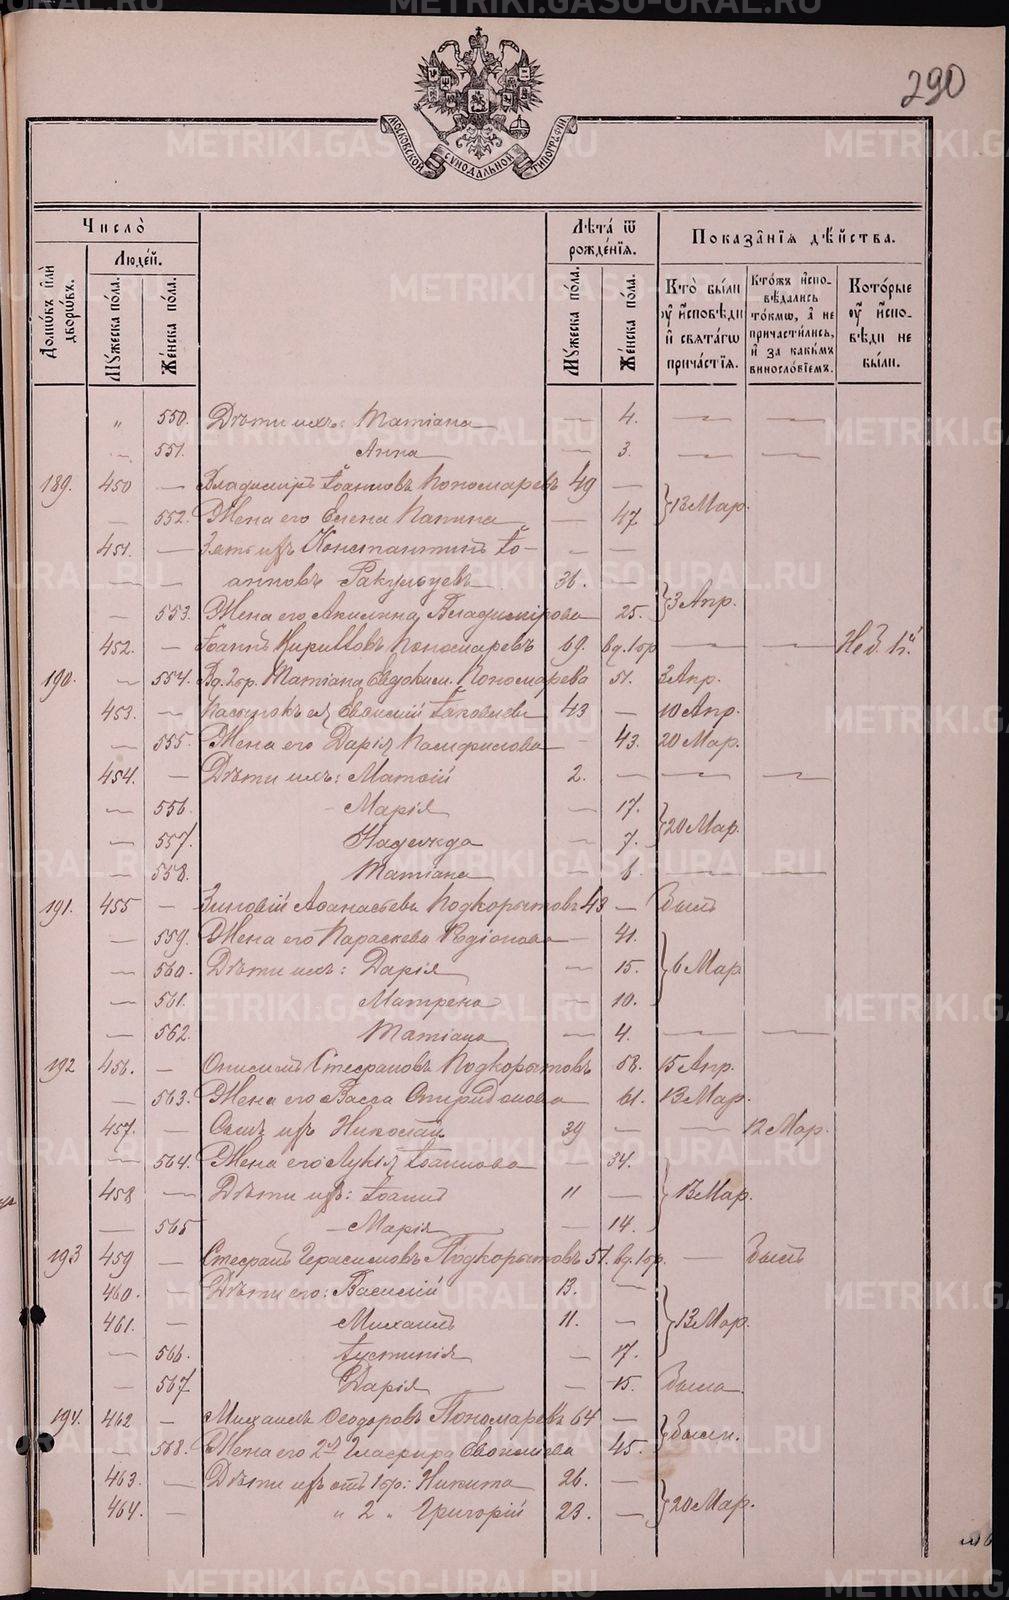 290
МОСКОВСКОЙ СѴНОДАЛЬНОЙ ТИПОГРАФІИ
Число̀
Лѣта̀ ѿ рожде́нїѧ.
Показа̑нїѧ дѣ́йства.
Домѡ́въ и҆лѝ дворѡ́въ.
Люде́й.
Мꙋ́жеска по́ла.
Же́нска по́ла.
Мꙋ́жеска по́ла.
Же́нска по́ла.
Кто̀ бы́ли ᲂу҆ и҆́сповѣди и҆ свѧта́гѡ прича́стїѧ.
Кто́жъ и҆спо-вѣдались то́кмѡ, а҆ не причасти́лись, и҆ за каки́мъ винослѡ́вїемъ.
Кото́рые ᲂу҆ и҆спо-вѣди не бы́ли.
" 550. Дѣти ихъ: Татіана — 4. — —
— 551. Анна — 3. — —
189. 450 — Владимиръ Іоанновъ Пономаревъ 49 —
— 552. Жена его Елена — 47. } 13 Мар.
451. — Зять ихъ Константинъ Іо- — —
— — анновъ Ракульцевъ 36. —
— 553. Жена его Акилина Владимірова 25. } 3 Апр.
452. — Іоаннъ Кирилловъ Пономаревъ 69. вд. 1 бр. — — Нед.
190. — 554. Вд. 2 бр. Татіана Евдоким. Пономарева 51. 3 Апр.
453. — Пасынокъ ея Іаковлевъ 43 — 10 Апр.
— 555. Жена его Дарія Памфилова — 43. 20 Мар.
454. — Дѣти ихъ: Матѳій 2. — — —
— 556. — Марія — 17.
— 557. Надежда — 7. } 20 Мар.
— 558. Татіана — — —
191. 455 — Зиновій Аѳанасьевъ Подкорытовъ 43 — Былъ
— 559. Жена его Параскева Родіонова — 41.
— 560. Дѣти ихъ: Дарія — 15. } 6 Мар
— 561. Матрена — 10.
— 562. Татіана — 4. — —
192 456. — Онисимъ Стефановъ Подкорытовъ 58. 15 Апр.
— 563. Жена его Васса Спиридонова — 61. 13 Мар.
457. — Сынъ ихъ Николай 39 — — 12 Мар.
— 564. Жена его Лукія Іоаннова — 34.
458 — Дѣти ихъ: Іоаннъ 11 — } 13 Мар.
— 565 — Марія — 14.
193 459 — Стефанъ Герасимовъ Подкорытовъ 51. вд. 1 бр. — Былъ
460. — Дѣти его: Василій 13. —
461. — Михаилъ 11. — } 13 Мар.
— 566. Іустинія — 17.
— 567 Дарія — 15. Была
194. 462 — Михаилъ Ѳеодоровъ Пономаревъ 64 —
— 568. Жена его 2я Гласфира 45. } Были.
463. — Дѣти ихъ отъ 1 бр: Никита 26. —
464. — " 2 " Григорій 23. — } 20 Мар.
METRIKI.GASO-URAL.RU